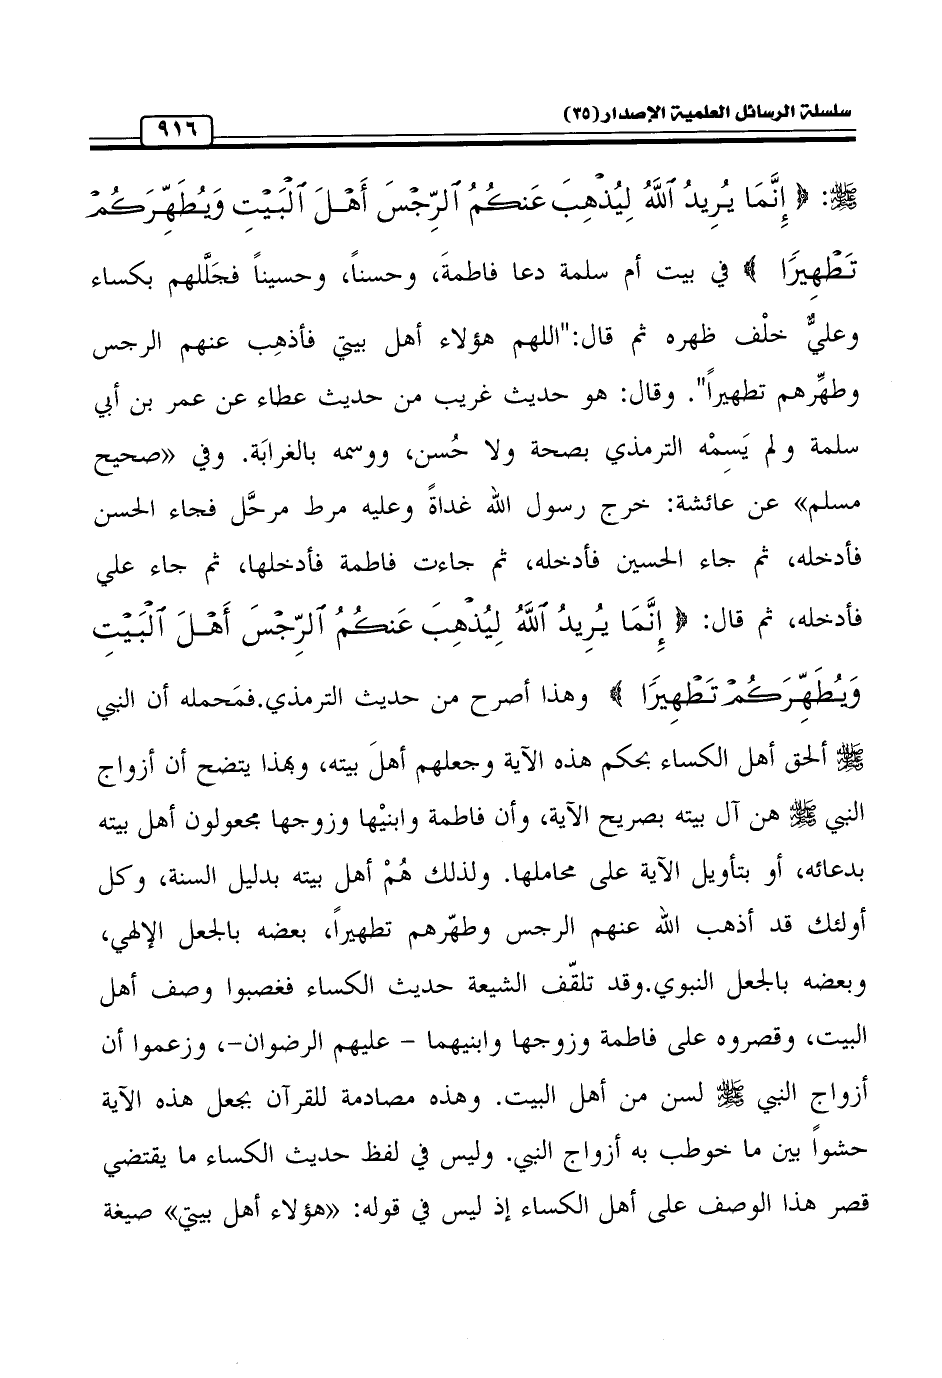 سلسلة الرسائل العلمية الإصدار (٣٥)
٩١٦
ﷺ: ﴿ إِنَّمَا يُرِيدُ ٱللَّهُ لِيُذْهِبَ عَنكُمُ ٱلرِّجْسَ أَهْلَ ٱلْبَيْتِ وَيُطَهِّرَكُمْ
تَطْهِيرًا ﴾ في بيت أم سلمة دعا فاطمةَ، وحسناً، وحسيناً فجَلَّلهم بكساء
وعليٌّ خلْف ظهره ثم قال:"اللهم هؤلاء أهل بيتي فأذهِب عنهم الرجس
وطهِّرهم تطهيراً". وقال: هو حديث غريب من حديث عطاء عن عمر بن أبي
سلمة ولم يَسِمْه الترمذي بصحة ولا حُسن، ووسمه بالغرابَة. وفي «صحيح
مسلم» عن عائشة: خرج رسول الله غداةً وعليه مرط مرحَّل فجاء الحسن
فأدخله، ثم جاء الحسين فأدخله، ثم جاءت فاطمة فأدخلها، ثم جاء علي
فأدخله، ثم قال: ﴿ إِنَّمَا يُرِيدُ ٱللَّهُ لِيُذْهِبَ عَنكُمُ ٱلرِّجْسَ أَهْلَ ٱلْبَيْتِ
وَيُطَهِّرَكُمْ تَطْهِيرًا ﴾ وهذا أصرح من حديث الترمذي.فمَحمله أن النبي
ﷺ ألحق أهل الكساء بحكم هذه الآية وجعلهم أهلَ بيته، وبهذا يتضح أن أزواج
النبي ﷺ هن آل بيته بصريح الآية، وأن فاطمة وابنيْها وزوجها مجعولون أهل بيته
بدعائه، أو بتأويل الآية على محاملها. ولذلك هُمْ أهل بيته بدليل السنة، وكل
أولئك قد أذهب الله عنهم الرجس وطهّرهم تطهيراً، بعضه بالجعل الإلهي،
وبعضه بالجعل النبوي.وقد تلقّف الشيعة حديث الكساء فغصبوا وصف أهل
البيت، وقصروه على فاطمة وزوجها وابنيهما – عليهم الرضوان–، وزعموا أن
أزواج النبي ﷺ لسن من أهل البيت. وهذه مصادمة للقرآن بجعل هذه الآية
حشواً بين ما خوطب به أزواج النبي. وليس في لفظ حديث الكساء ما يقتضي
قصر هذا الوصف على أهل الكساء إذ ليس في قوله: «هؤلاء أهل بيتي» صيغة